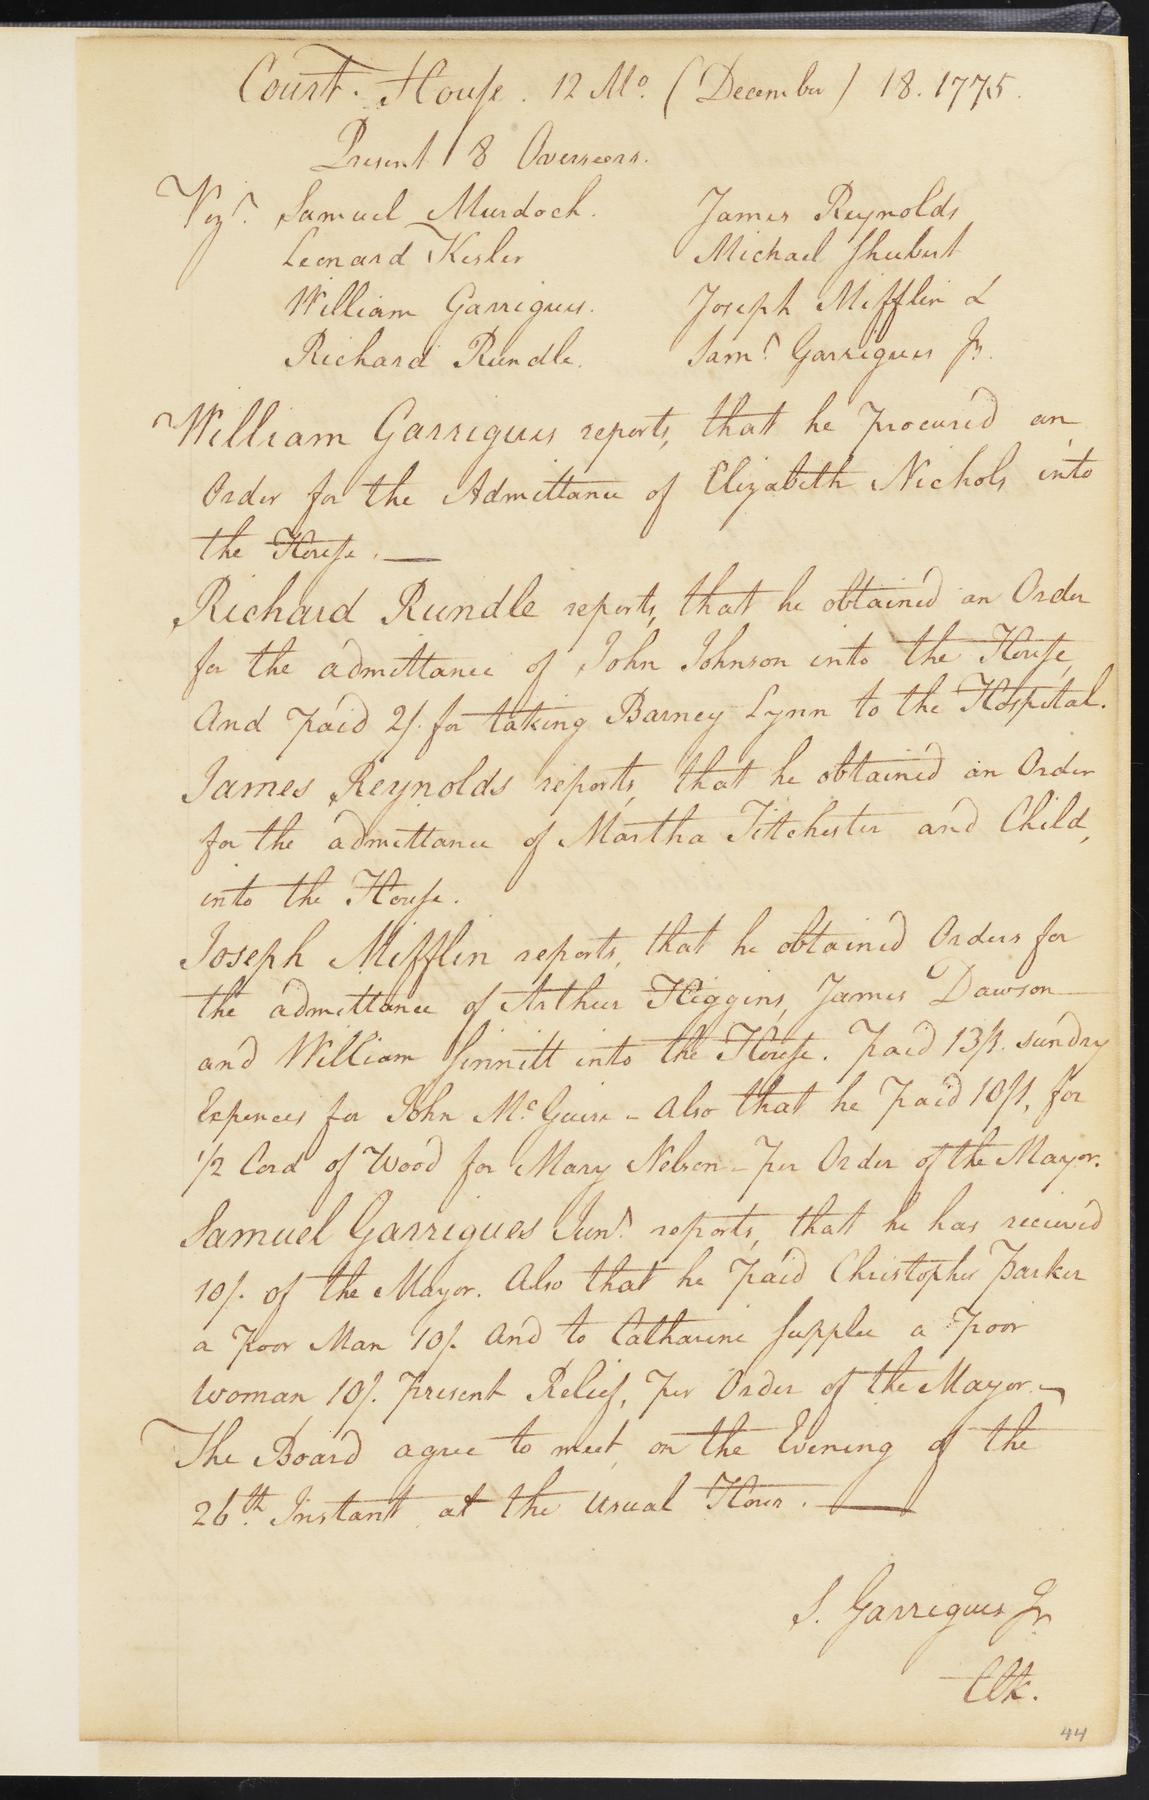 Court House. 12 Mo. (December) 18. 1775.
Present 8 Overseers.
Vizt. Samuel Murdoch. James Reynolds
Leonard Kesler Michael Shubert
William Garrigues. Joseph Mifflin &
Richard Rundle. Saml. Garrigues Jr.
William Garrigues reports, that he procured an
Order for the Admittance of Elizabeth Nichols into
the House. —
Richard Rundle reports, that he obtained an Order
for the admittance of John Johnson into the House,
And paid 2/. for taking Barney Lynn to the Hospital.
James Reynolds reports, that he obtained an Order
for the admittance of Martha Titchester and Child,
into the House.
Joseph Mifflin reports, that he obtained Orders for
the admittance of Arthur Higgins, James Dawson
and William Sinnitt into the House. Paid 13/1. sundry
Expences for John McGuire - Also that he paid 10/1, for
1/2 Cord of Wood for Mary Nelson - Per Order of the Mayor.
Samuel Garrigues Junr. reports, that he has recieved
10/. of the Mayor. Also that he paid Christopher Parker
a Poor Man 10/. And to Catharine Supplee a Poor
Woman 10/. Present Relief, Per Order of the Mayor. —
The Board agree to meet on the Evening of the
26th. Instant at the Usual Hour. —
S. Garrigues Jr
Clk.
44